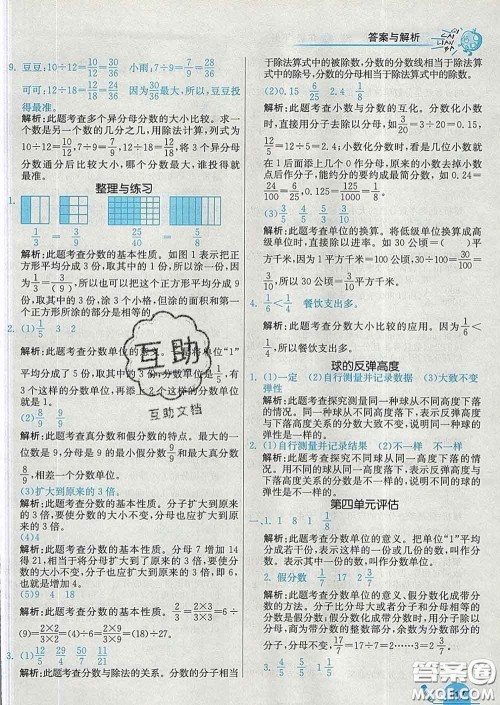 答案与解析
9. 豆豆:10÷12=10/12=30/36 小雨:7÷9=7/9=28/36
可可:12÷18=12/18=24/36 因为30/36最大,所以,豆豆投
得最准。
解析:此题考查多个异分母分数的大小比较。求一
个数是另一个数的几分之几,用除法计算,列式为
10÷12=10/12,7÷9=7/9,12÷18=12/18,将3个异分母
分数通分后比较大小,哪个分数最大,谁投得就
最准。
整理与练习
1.
1/3 3/9 5/8
解析:此题考查分数的基本性质。如图1表示把正
方形平均分成3份,取其中的1份,所以涂1份,因
为1/3=3/9,所以也可以把这个正方形平均分成9
份,取其中的3份,涂3个小格,但涂的面积和第一
个正方形所涂部分的面积是相等的
2. (1)1/5 3 2
解析:此题考查分数单位的意义。
平均分成了5份,取其中的3份,分数单位是1/5,有
3个这样的分数单位,再添上2个这样的分数单位
就是1。
(2)8/9 9/9
解析:此题考查真分数和假分数的特点。最大的真
分数,分母是9的最小的假分数是9/9,最大真分数是
8/9,相差一个分数单位。
(3)扩大到原来的3倍
解析:此题考查分数的基本性质。分子扩大到原来
的3倍,要使分数的大小不变,分母也扩大到原来
的3倍。
(4)4
解析:此题考查分数的基本性质。分母7增加14
得21,相当于将分母扩大到原来的3倍,要使分数
大小不变,分子也要扩大到原来的3倍,2×3=6,相
当于增加了4。
(5)9 4 18
解析:此题考查分数的基本性质。2/3=2×3/3×3=6÷
(9)=(2×2)/3×2=(4)/6=2×6/3×6=12/(18)。
3. (1)12/25 5/49 11/50 29/51
解析:此题考查分数与除法的关系。分数的分子相当
于除法算式中的被除数,分数的分数线相当于除法算
式中的除号,分数的分母相当于除法算式中的除数。
(2)0.15 6/25 2.4 1/8
解析:此题考查小数与分数的互化。分数化小数
时,直接用分子去除以分母,如3/20=3÷20=0.15,
12/5=12÷5=2.4,小数化分数时,看是几位小数就
在1后面添上几个0作为分母,原来的小数去掉小
数点后作分子,能约分的要约成最简分数,如0.24=
24/100=6/25,0.125=125/1000=1/8。
(3)3/5 5/10 3/10
解析:此题考查单位的换算。将低级单位换算成高
级单位时,直接除以进率,如30公顷=( )平方
千米,因为1平方千米=100公顷,所以30公顷=
30/100=3/10平方千米。
4. 1/6<1/4 餐饮支出多。
解析:此题考查分数大小比较的应用。因为1/6<
1/4,所以餐饮支出多。
球的反弹高度
1. (1)一定 (2)自行测量并记录数据 (3)大致不变
弹性
解析:此题考查探究测量同一种球从不同高度落下
的情况。同一种球从不同高度落下,表示反弹高度
与下落高度关系的分数大致不变,这说明用同一种
球从不同高度下落,其弹性是一样的。
2. (1)自行测量并记录结果 (2)不一样 不一样
解析:此题考查探究不同的球从同一高度落下的
情况。用不同的球从同一高度落下,表示反弹高度与
下落高度关系的分数是不一样的,这说明不同球的
弹性是不一样的。
第四单元评估
一、1. 1/8 1 8 1/8
解析:此题考查分数单位的意义。把单位“1”平均
分成若干份,表示这样的一份或几份的数,叫作分
数。表示其中一份的数,叫作分数单位。
2. 假分数 1/7 17 2 3/7
解析:此题考查分数单位的意义及假分数化成带分
数的方法。分子比分母大或分子与分母相等的分
数,叫作假分数。假分数化成带分数时,用分子除以
分母,即17÷7=2……3,所以17/7=2 3/7。
互助
互助文档
答案圈